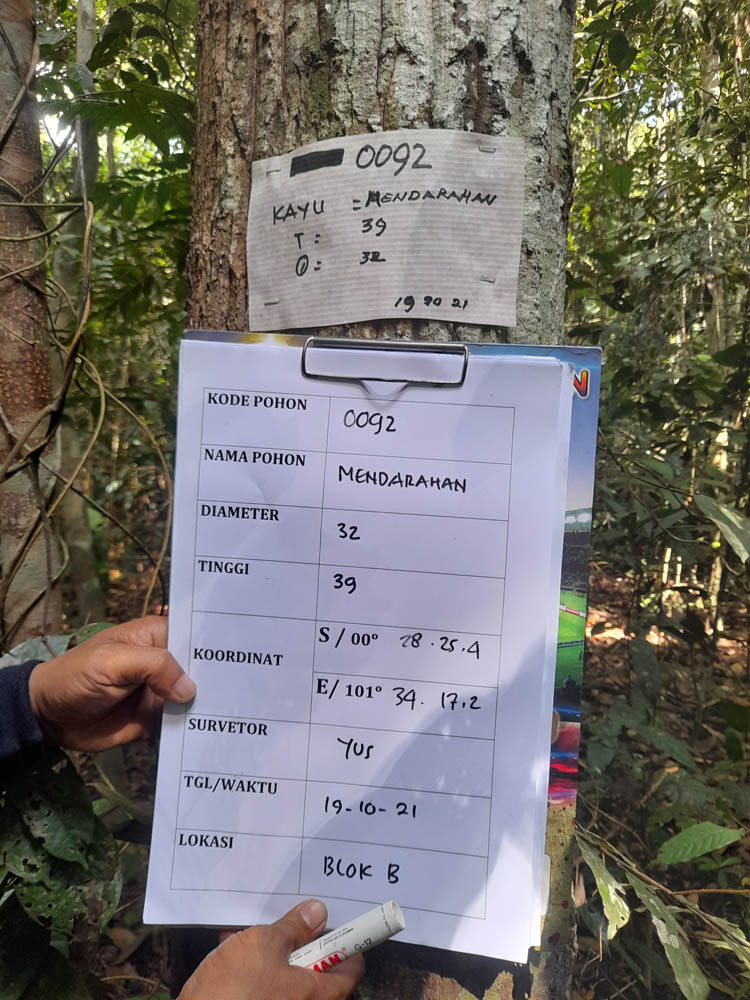 0092
KAYU = MENDARAHAN
T = 39
Ø = 32
19 20 21
KODE POHON 0092
NAMA POHON MENDARAHAN
DIAMETER 32
TINGGI 39
KOORDINAT S / 00° 28.25.4
E/ 101° 34. 17.2
SURVETOR YUS
TGL/WAKTU 19-10-21
LOKASI BLOK B
G-12